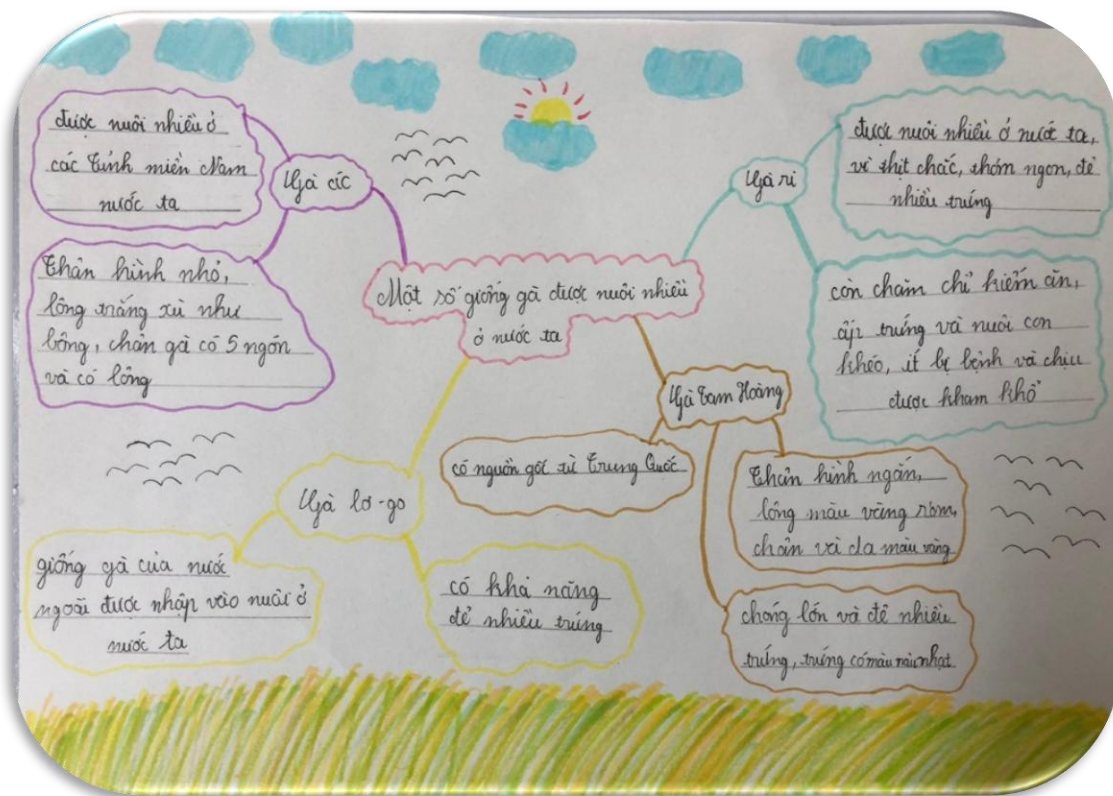 Một số giống gà được nuôi nhiều
ở nước ta
Gà ác
được nuôi nhiều ở
các tỉnh miền Nam
nước ta
Thân hình nhỏ,
lông trắng xù như
bông, chân gà có 5 ngón
và có lông
Gà ri
được nuôi nhiều ở nước ta,
vì thịt chắc, thơm ngon, đẻ
nhiều trứng
còn chăm chỉ kiếm ăn,
ấp trứng và nuôi con
khéo, ít bị bệnh và chịu
được kham khổ
Gà Tam Hoàng
có nguồn gốc từ Trung Quốc
Thân hình ngắn,
lông màu vàng rơm,
chân và da màu vàng
chóng lớn và đẻ nhiều
trứng, trứng có màu nâu nhạt
Gà lơ-go
giống gà của nước
ngoài được nhập vào nuôi ở
nước ta
có khả năng
đẻ nhiều trứng